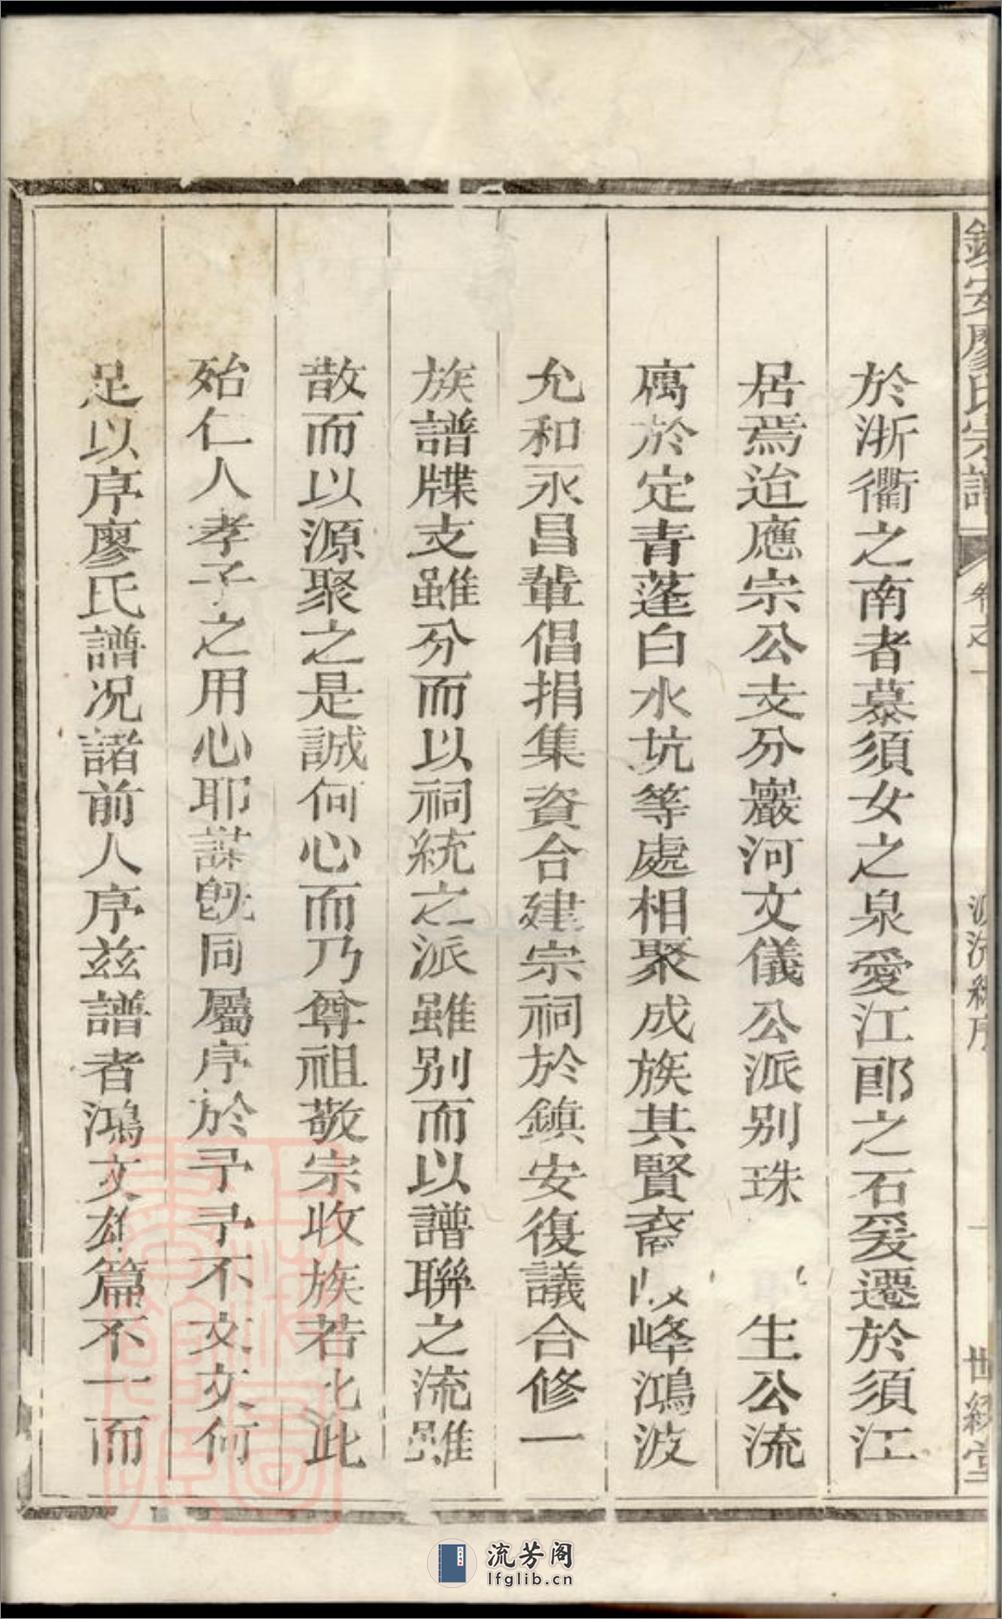 鎮安廖氏宗譜 卷之一 源流總序 一 世綵堂
於浙衢之南者慕須女之泉愛江郎之石爰遷於須江
居焉迨應宗公支分巖河文儀公派别珠 生公流
寓於定青蓬白水坑等處相聚成族其賢裔 峰鴻波
允和永昌輩倡捐集資合建宗祠於鎮安復議合修一
族譜牒支雖分而以祠統之派雖别而以譜聯之流雖
散而以源聚之是誠何心而乃尊祖敬宗收族若此此
殆仁人孝子之用心耶謀既同屬序於予予不文文何
足以序廖氏譜况諸前人序兹譜者鴻文雄篇不一而
流芳阁
lfglib.cn